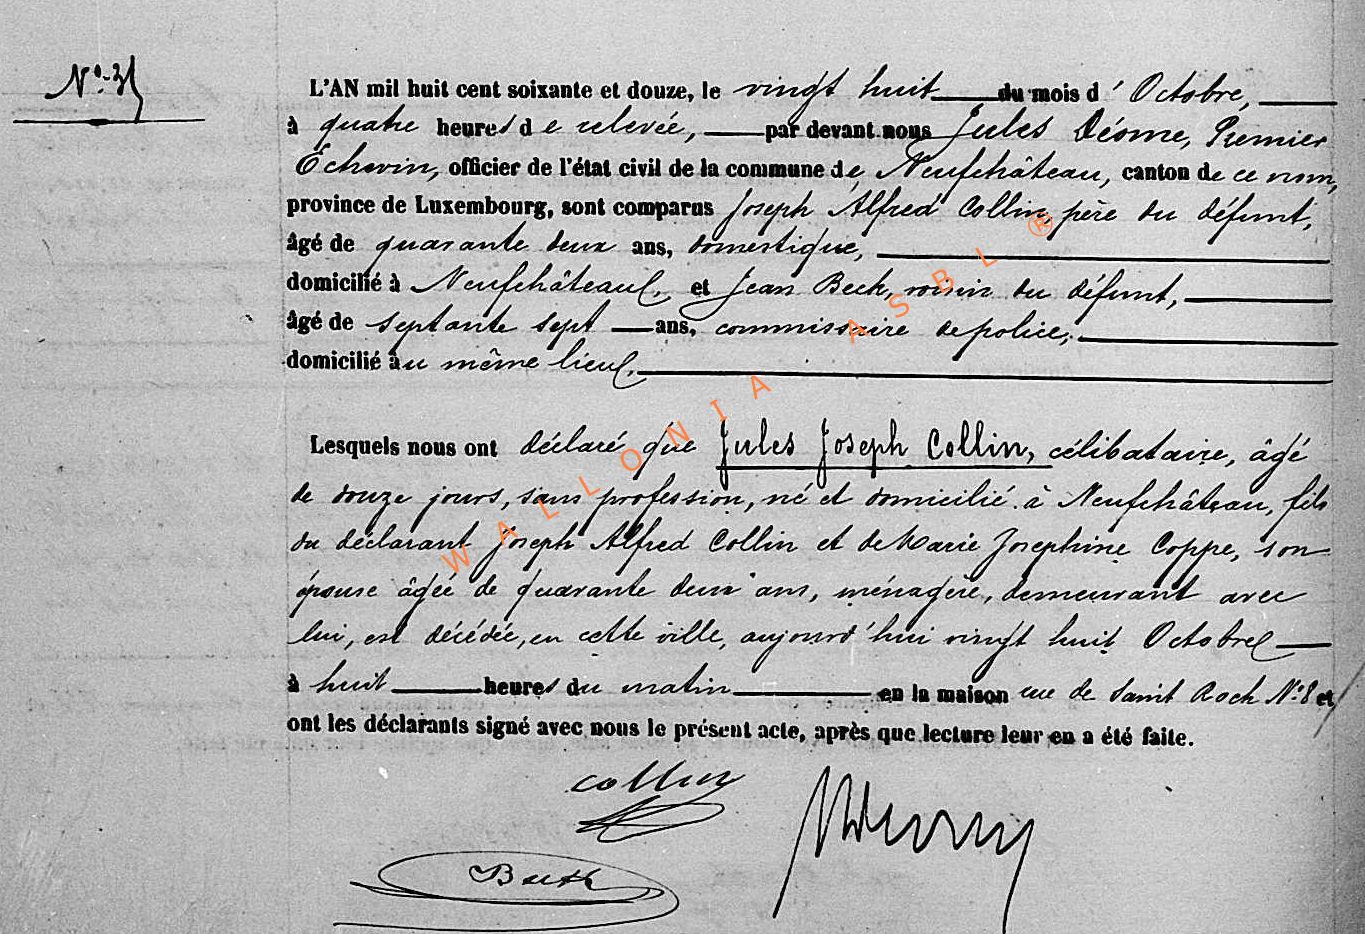 N°. 31
L'AN mil huit cent soixante et douze, le vingt huit du mois d'Octobre,
à quatre heures de relevée, par devant nous Jules Désme, Premier
Echevin, officier de l'état civil de la commune de Neufchâteau, canton de ce nom,
province de Luxembourg, sont comparus Joseph Alfred Collin, père du défunt,
âgé de quarante deux ans, domestique,
domicilié à Neufchâteau, et Jean Beck, voisin du défunt,
âgé de septante sept ans, commissaire de police,
domicilié au même lieu.
Lesquels nous ont déclaré que Jules Joseph Collin, célibataire, âgé
de douze jours, sans profession, né et domicilié à Neufchâteau, fils
du déclarant Joseph Alfred Collin et de Marie Josephine Coppe, son
épouse âgée de quarante deux ans, ménagère, demeurant avec
lui, est décédée, en cette ville, aujourd'hui vingt huit Octobre
à huit heures du matin en la maison rue de Saint Roch N° 8 et
ont les déclarants signé avec nous le présent acte, après que lecture leur en a été faite.
Collin
Beck
WALLONIA ASBL ®